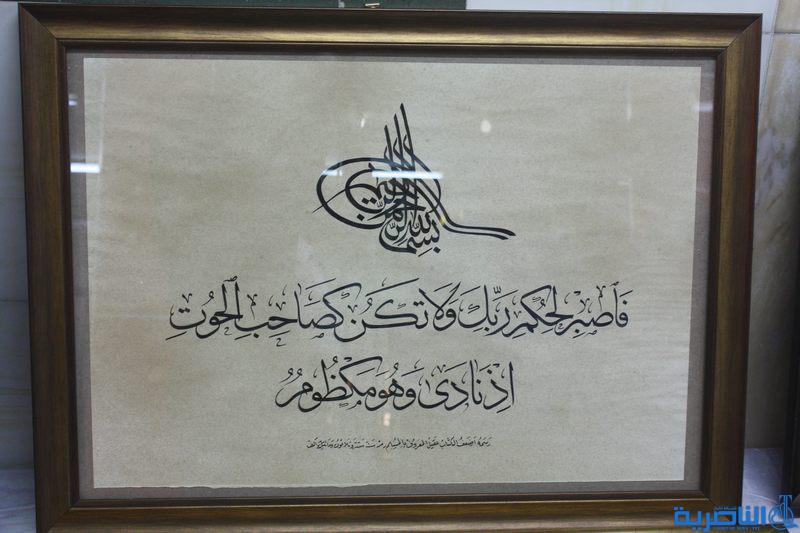 بسم الله الرحمن الرحيم
فَاصْبِرْ لِحُكْمِ رَبِّكَ وَلَا تَكُنْ كَصَاحِبِ الْحُوتِ
اِذْ نَادَىٰ وَهُوَ مَكْظُومٌ
الناصرية